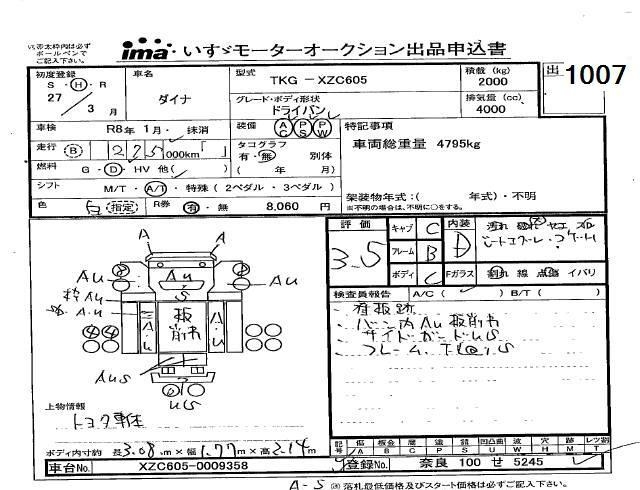 い、赤太枠内は必ず
ボールペンで
ご記入下さい。
ima いすゞモーターオークション出品申込書
出 1007
初度登録 S・H・R 27/3月
車名 ダイナ
型式 TKG-XZC605
グレード・ボディ形状 ドライバン
積載 (kg) 2000
排気量 (cc) 4000
車検 R8年 1月・抹消
装備 AC PS PW
特記事項
車両総重量 4795kg
走行 B 275 000km
タコグラフ 有・無 別体
( 年 月)
燃料 G・D・HV 他( )
シフト M/T・A/T・特殊 (2ペダル・3ペダル)
架装物年式:( 年式)・不明
※不明の場合は、不明に○をする。
色 白 指定 R券 有・無 8,060 円
評価 3.5
キャブ C
フレーム B
ボディ C
内装 D
Fガラス 割れ 線 点傷 イバリ
検査員報告 A/C ( ) B/T ( )
看板跡
バン内Au板削れ
サイドガードUS
A A
Au Au Au
S
枠Au
A・u
板削れ
A・u
AUS
US
上物情報
トヨタ車体
ボディ内寸約 長3.08m×幅1.77m×高2.14m
記号 傷 板金 腐 塗 錆 凹凸曲 波 穴 跡 レツ割
A B C P S U W H M T
車台No. XZC605-0009358
登録No. 奈良 100 せ 5245
A-S
落札最低価格及びスタート価格は必ずご記入下さい。